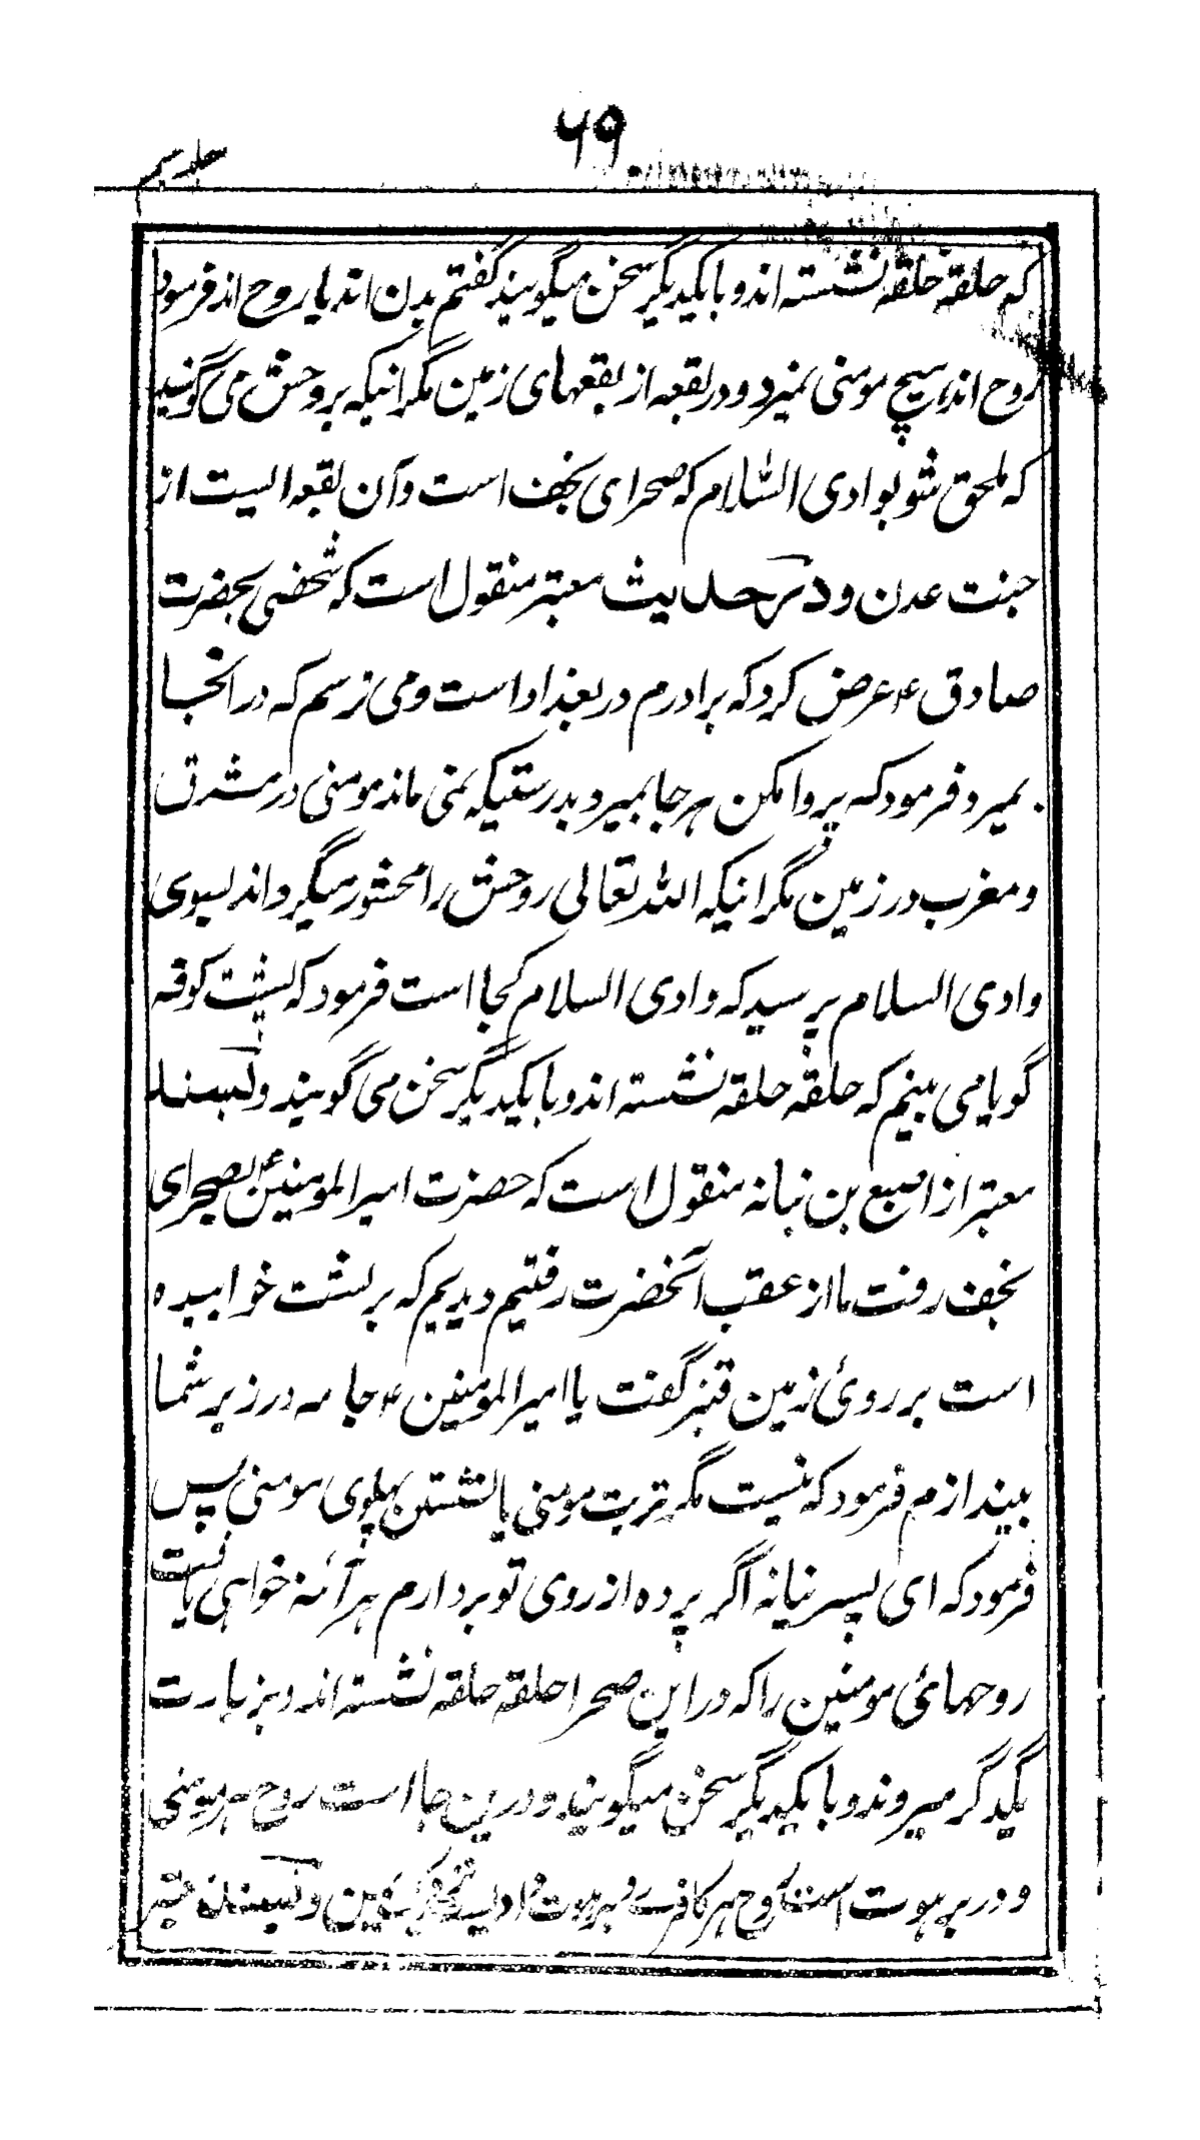 ۶۹
جلد سیم
که حلقه حلقه نشسته اند و با یکدیگر سخن میگویند گفتم بدن اند یا روح اند فرمود
روح اند هیچ مومنی نمیرد و در بقعه از بقعهای زمین مگر انیکه بروحش می گویند
که ملحق شو بوادی السّلام که صحرای نجف است و آن بقعه ایست از
جنت عدن و در حدیث معتبر منقول است که شخصی بحضرت
صادق ع عرض کرد که برادرم در بغداد است و می ترسم که در انجا
بمیرد فرمود که پروا مکن هر جا بمیرد بدرستیکه نمی ماند مومنی در مشرق
و مغرب در زمین مگر انیکه الله تعالی روحش را محشور میگرداند بسوی
وادی السلام پرسید که وادی السلام کجا است فرمود که پشت کوفه
گویا می بینم که حلقه حلقه نشسته اند و با یکدیگر سخن می گویند و بسند
معتبر از اصبع بن نباته منقول است که حضرت امیر المومنین ع بصحرای
نجف رفت ما از عقب آنحضرت رفتیم دیدیم که بر پشت خوابیده
است بر روئ زمین قنبر گفت یا امیر المومنین ع جامه در زیر شما
بیندازم فرمود که نیست مگر تربت مومنی یا نشستن پهلوی مومنی پس
فرمود که ای پسر نباته اگر پرده از روی تو بردارم هر آئنه خواهی یافت
روحهائ مومنین را که در این صحرا حلقه حلقه نشسته اند و بزیارت
یگدگر میروند و با یکدیگر سخن میگویند و درین جا است روح هر مومنی
و در برهوت است روح هر کافرے و برهوت وادیست یمن و بسند معتبر